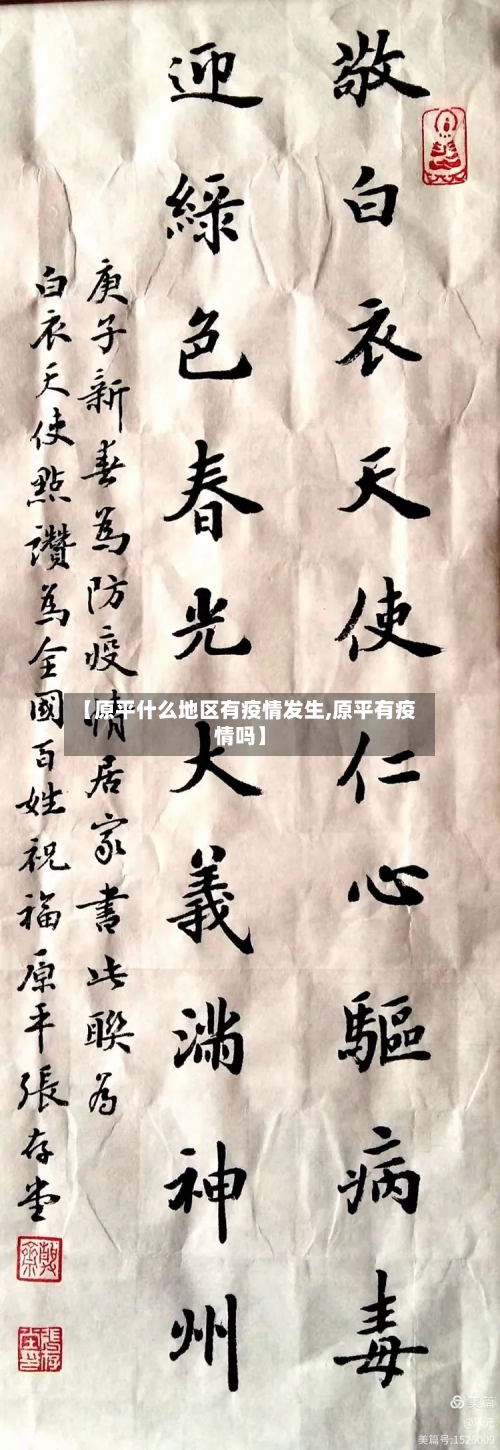 敬白衣天使仁心驅病毒
迎綠色春光大義滿神州
庚子新春為防疫情居家書此聯為
白衣天使點讚為全國百姓祝福原平張存堂
【原平什么地区有疫情发生,原平有疫
情吗】
美篇
美篇号:1525009